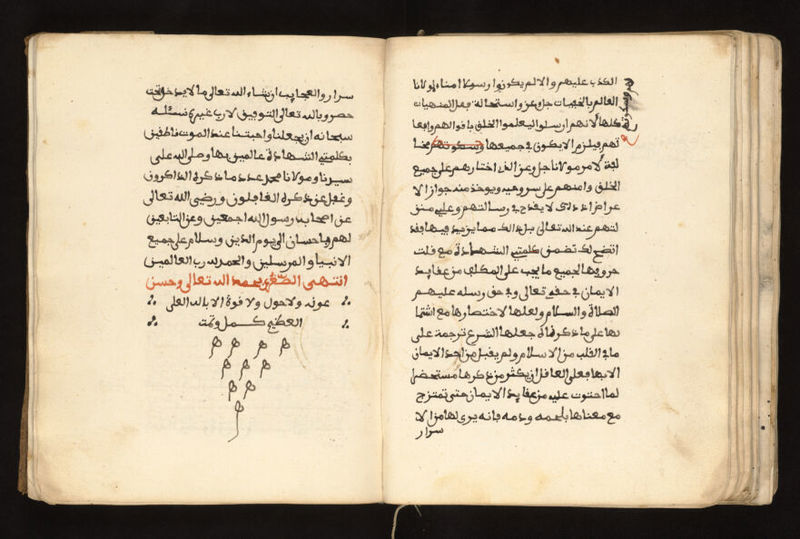 الكذب عليهم والا لم يكونوا رسولا امناء لمولانا
العالم بالخفيات جل وعز واستحالة فعل المنهيات
كلها لانهم ارسلوا ليعلموا الخلق باقوالهم وافعا
لهم فيلزم الا يكون في جميعها وسكوتهم مخا
وسكوتهم
لفة لامر مولانا جل وعز الذي اختارهم على جميع
الخلق وامنهم على سر وحيه ويوخذ منه جواز الا
عراض اذ ذاك لا يقدح في رسالتهم وعلي منز
لتهم عند الله تعالى بل ذالك مما يزيد فيها فقد
اتضح لك تضمن كلمتي الشهادة مع قلت
حروفها لجميع ما يجب على المكلف من عقايد
الايمان في حقه تعالى وفي حق رسله عليهم
الصلاة والسلام ولعلها لاختصارها مع اشتما
لها على ما ذكرناه جعلها الشرع ترجمة على
ما في القلب من الاسلام ولم يقبل من احد الايمان
الا بها فعلى العاقل ان يكثر من ذكرها مستحضرا
لما احتوت عليه من عقايد الايمان حتى تمتزج
مع معناها بلحمه ودمه فانه يرى لها من الا
سرار
سرار والعجايب ان شاء الله تعالى ما لا يدخل تحت
حصر وبالله تعالى التوفيق لا رب غيره نسئله
سبحانه ان يجعلنا واحبتنا عند الموت ناطقين
بكلمتي الشهادة عالمين بها وصلى الله على
سيدنا ومولانا محمد عدد ما ذكره الذاكرون
وغفل عن ذكره الغافلون ورضي الله تعالى
عن اصحاب رسول الله اجمعين وعن التابعين
لهم باحسان الى يوم الدين وسلام على جميع
الانبيا والمرسلين والحمد لله رب العالمين
انتهى الصغرى بحمد الله تعالى وحسن
عونه ولا حول ولا قوة الا بالله العلي
العظيم كمل وتمت
ه ه ه ه
ه ه ه
ه ه
ه